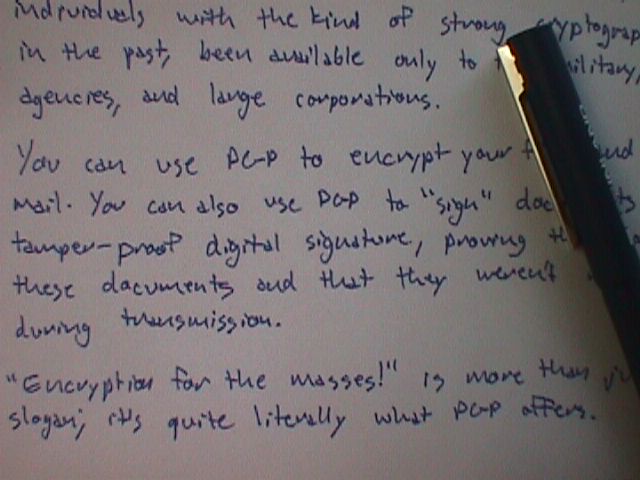 individuals with the kind of strong
in the past, been available only to military,
agencies, and large corporations.
You can use PGP to encrypt your
mail. You can also use PGP to "sign"
tamper-proof digital signature, proving
these documents and that they weren't
during transmission.
"Encryption for the masses!" is more than
slogan; it's quite literally what PGP offers.